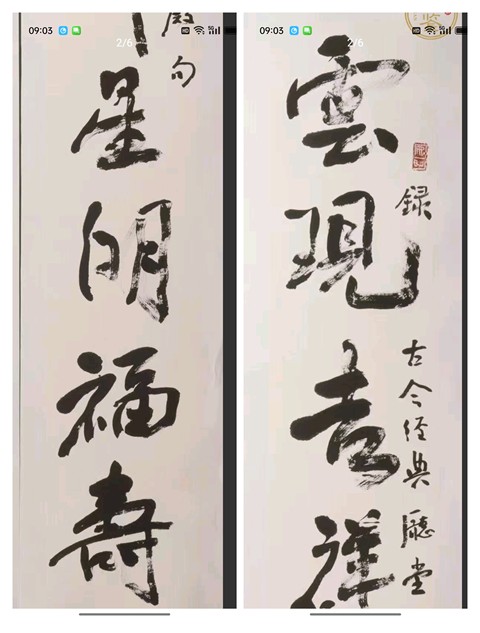 09:03
2/6
句
星明福壽
09:03
2/6
雲現吉祥
録古今经典廳堂